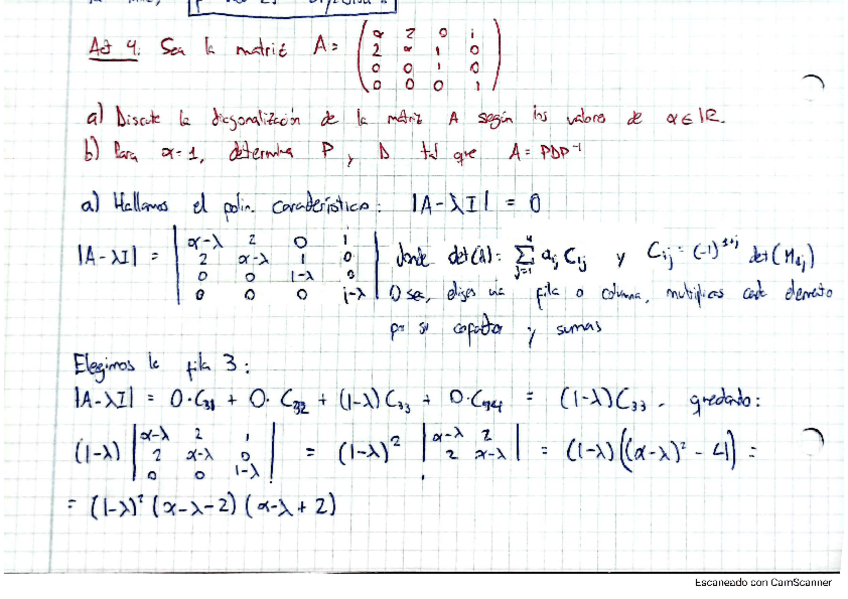 Act 4. Sea la matriz A = (α 2 0 1
2 α 1 0
0 0 1 0
0 0 0 1)
a) Discute la diagonalización de la matriz A según los valores de α ∈ ℝ.
b) Para α=1, determina P y D tal que A = PDP⁻¹
a) Hallamos el polin. característico: |A-λI| = 0
|A-λI| = |α-λ 2 0 1
2 α-λ 1 0
0 0 1-λ 0
0 0 0 1-λ|
donde det(A) = Σ_{j=1}^{4} a_{ij} C_{ij} y C_{ij} = (-1)^{i+j} det(M_{ij})
O sea, eliges una fila o columna, multiplicas cada elemento
por su cofactor y sumas
Elegimos la fila 3:
|A-λI| = 0·C₃₁ + 0·C₃₂ + (1-λ)C₃₃ + 0·C₃₄ = (1-λ)C₃₃. quedando:
(1-λ) |α-λ 2 1
2 α-λ 0
0 0 1-λ| = (1-λ)² |α-λ 2
2 α-λ| = (1-λ)((α-λ)² - 4) =
= (1-λ)² (α-λ-2)(α-λ+2)
Escaneado con CamScanner